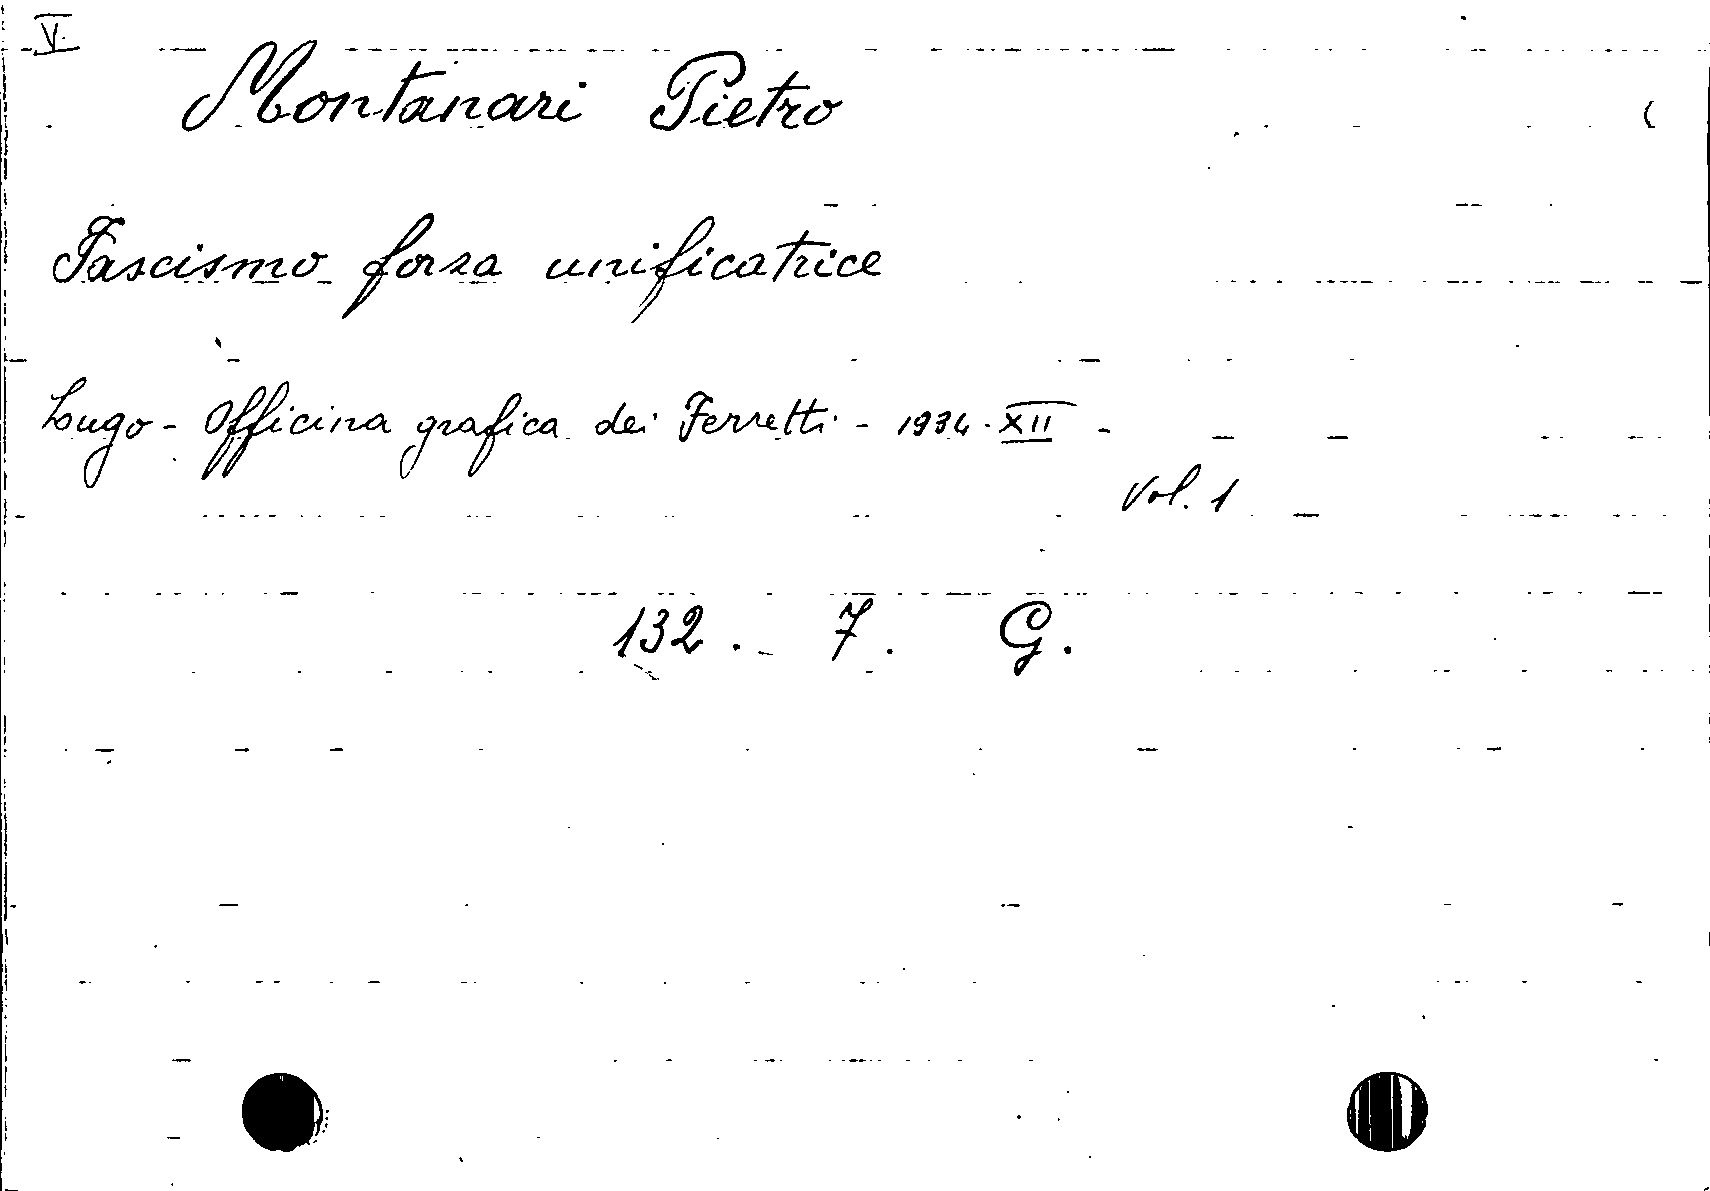 V.
Montanari Pietro
Fascismo forza unificatrice
Lugo - Officina grafica dei Ferretti - 1934 · XII -
Vol. 1
132. 7. G.